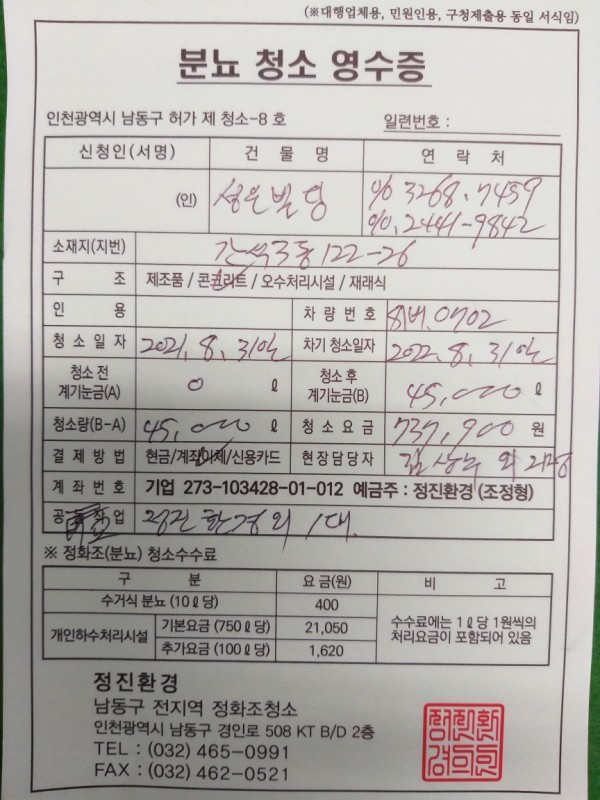 (※대행업체용, 민원인용, 구청제출용 동일 서식임)
분뇨 청소 영수증
인천광역시 남동구 허가 제 청소-8 호
일련번호 :
신청인(서명) 건물명 연락처
(인) 성은빌딩 010 3268.7459
010.2441-9842
소재지(지번) 간석3동 122-26
구조 제조품 / 콘크리트 / 오수처리시설 / 재래식
인용 차량번호 81버.0702
청소일자 2021.8.31일 차기 청소일자 2022.8.31일
청소 전 계기눈금(A) 0 ℓ 청소 후 계기눈금(B) 45,000 ℓ
청소량(B-A) 45,000 ℓ 청소요금 737,900 원
결제방법 현금/계좌이체/신용카드 현장담당자 김 외 2명
계좌번호 기업 273-103428-01-012 예금주 : 정진환경 (조정형)
공동작업 정진환경외 1대.
※ 정화조(분뇨) 청소수수료
구분 요금(원) 비고
수거식 분뇨 (10ℓ당) 400
개인하수처리시설 기본요금 (750ℓ당) 21,050
추가요금 (100ℓ당) 1,620
수수료에는 1ℓ당 1원씩의
처리요금이 포함되어 있음
정진환경
남동구 전지역 정화조청소
인천광역시 남동구 경인로 508 KT B/D 2층
TEL : (032) 465-0991
FAX : (032) 462-0521